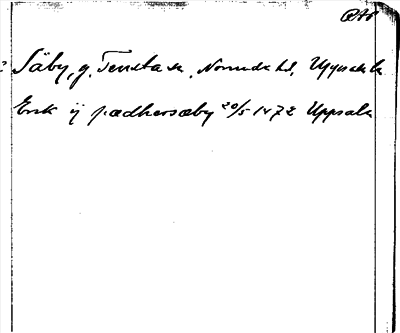 RAp
Säby, g. Tensta sn, Norunda hd, Uppsala l.
Erik ij pædhersæby 20/5 1472 Uppsala